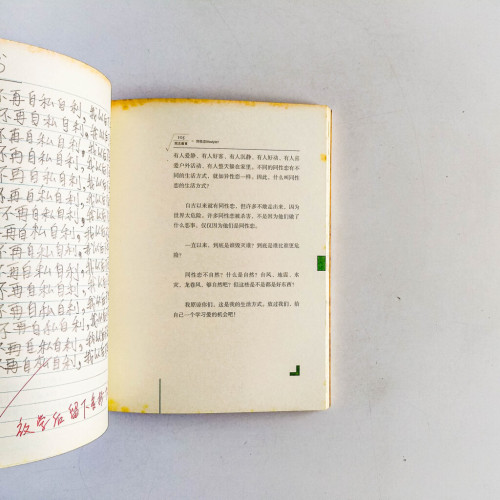 不再自私自利,我
不再自私自利,我
不再自私自利,我
不再自私自利,我
不再自私自利,我
不再自私自利,我
不再自私自利,我
不再自私自利,我
不再自私自利,我
不再自私自利,我
不再自私自利,我
不再自私自利,我
不再自私自利,我
不再自私自利,我
放学后留下
有人爱静,有人好客,有人沉静,有人好动,有人喜
爱户外活动,有人整天躲在家里。不同的同性恋有不
同的生活方式,就如异性恋一样。因此,什么叫同性
恋的生活方式?
自古以来就有同性恋,但许多不敢走出来,因为
世界太危险。许多同性恋被杀害,不是因为他们做了
什么恶事,仅仅因为他们是同性恋。
一直以来,到底是谁毁灭谁?到底是谁比谁更危
险?
同性恋不自然?什么是自然?台风、地震、水
灾、龙卷风,够自然吧?但这些是不是都是好东西?
我原谅你们。这是我的生活方式。放过我们,给
自己一个学习爱的机会吧!